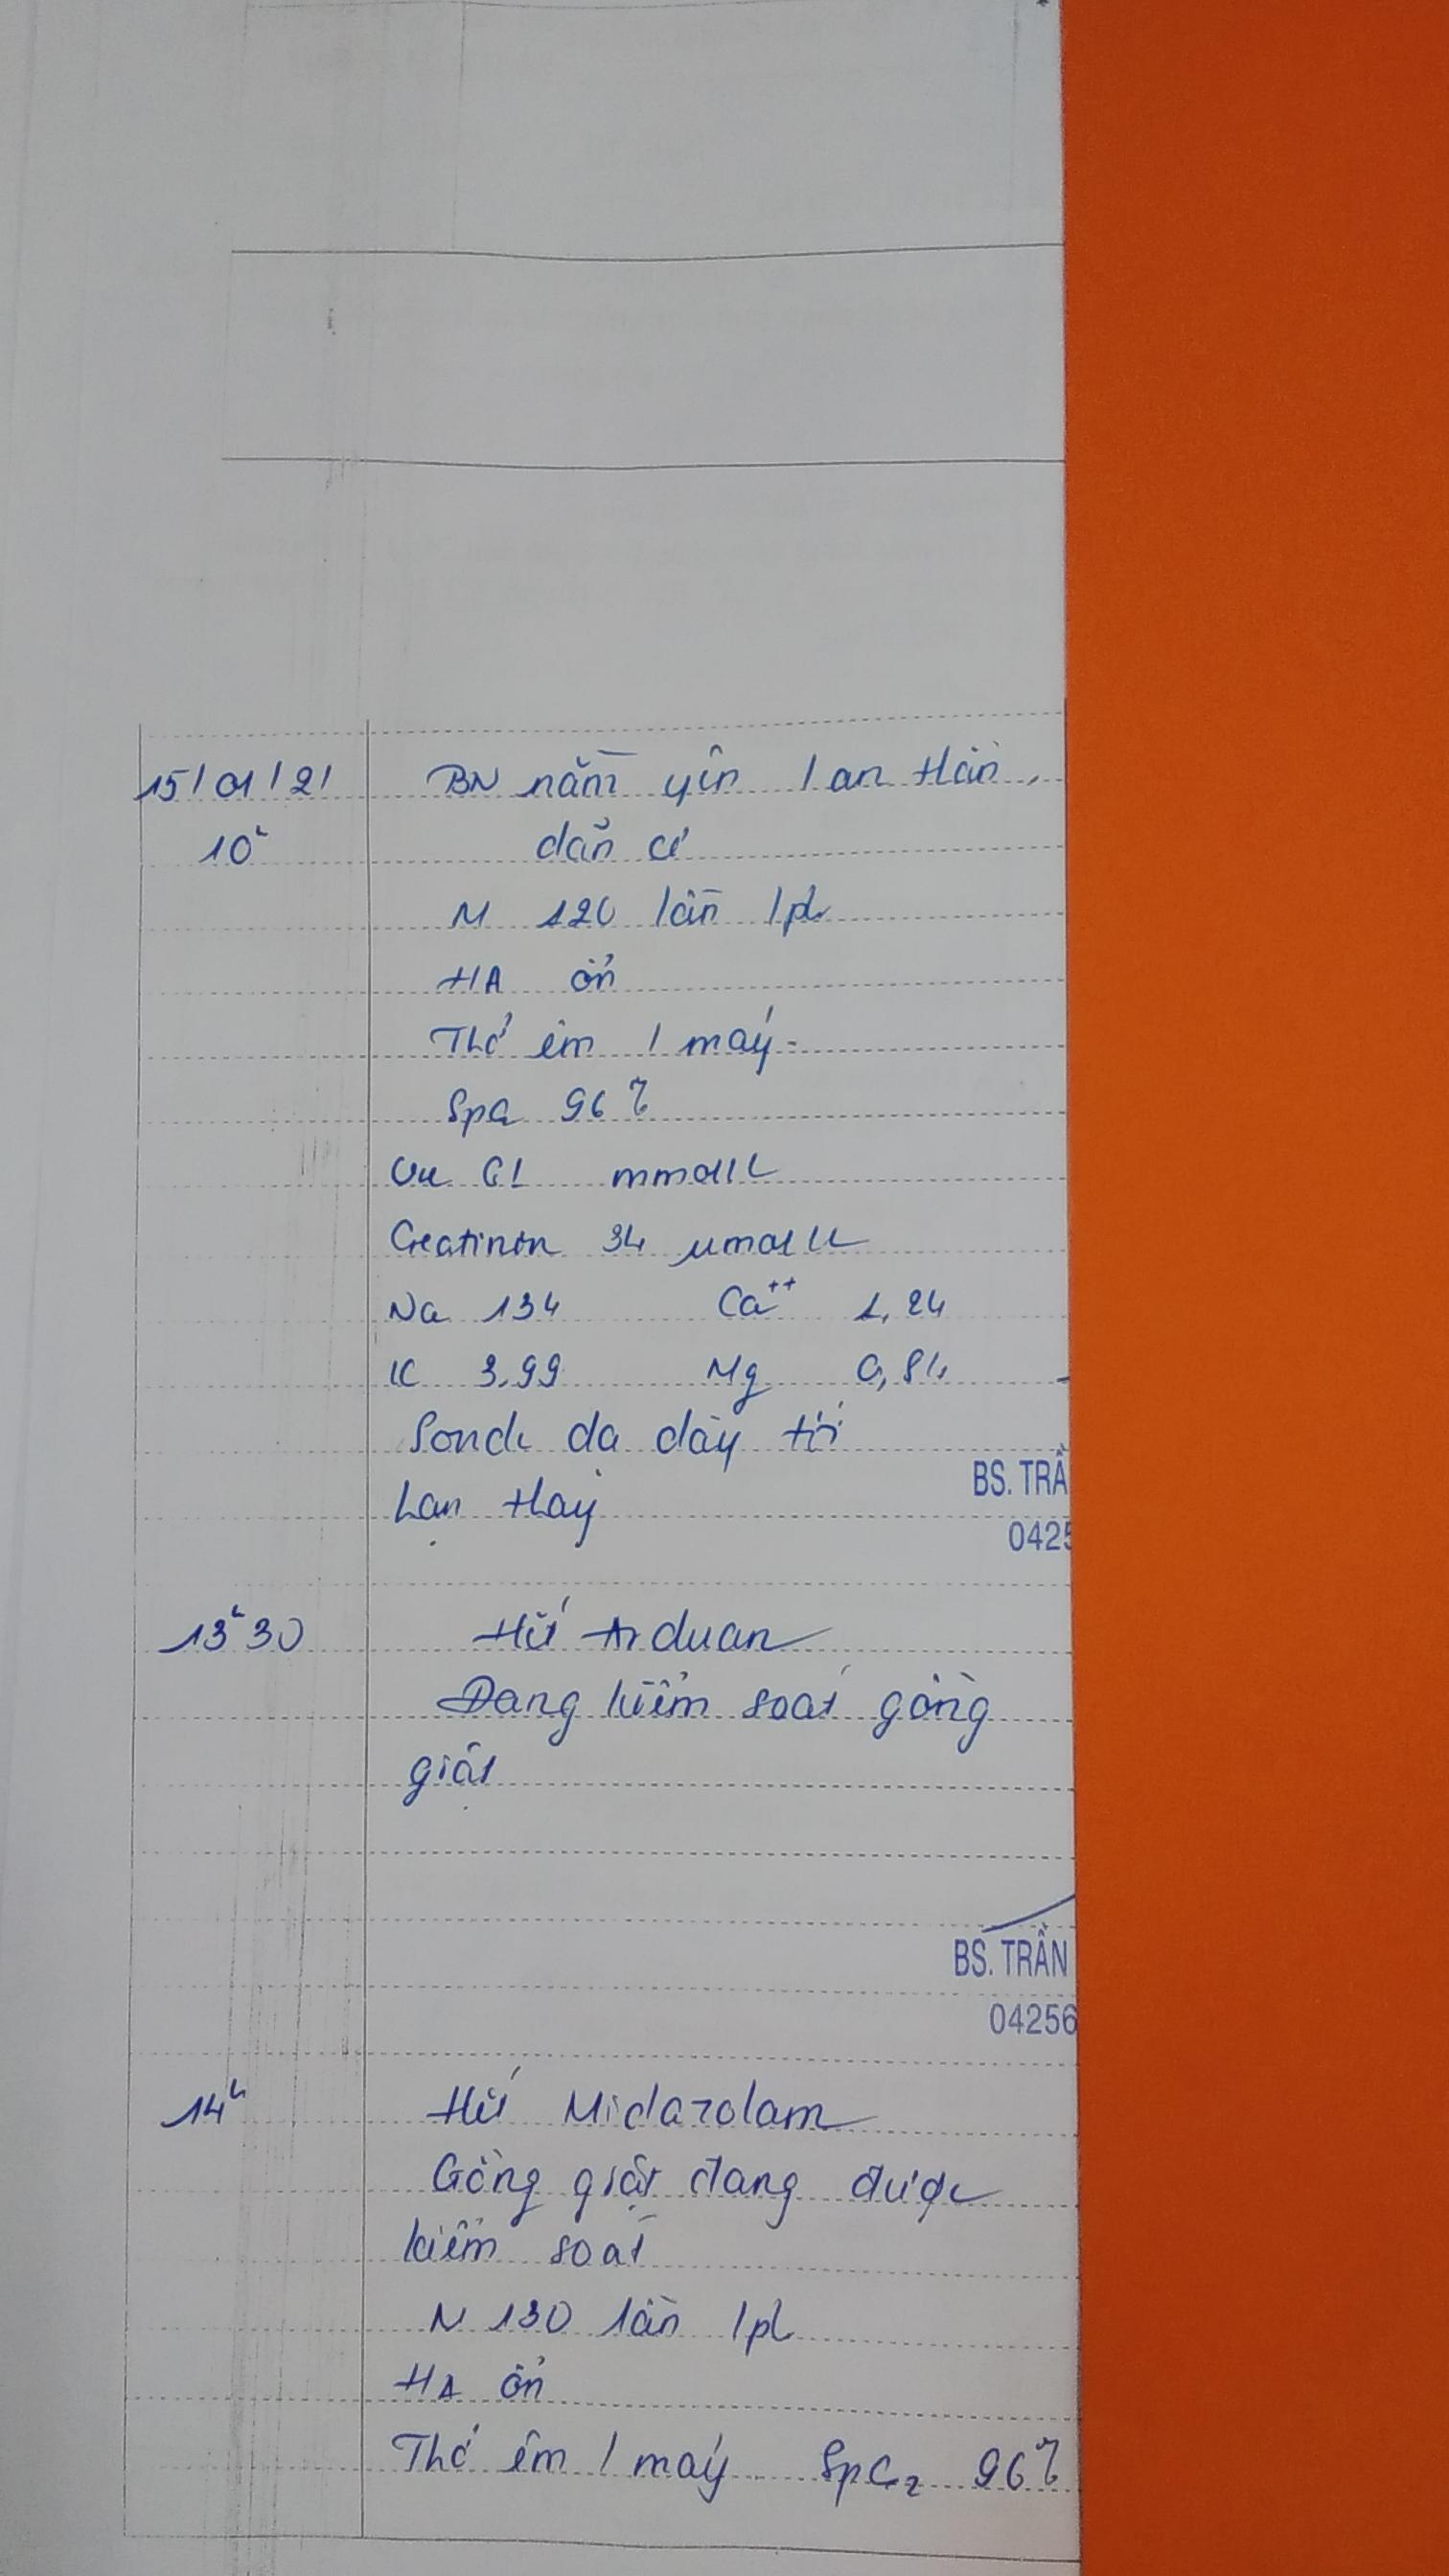 15/01/21 BN nằm yên / an thần,
10h dãn cơ
M 120 lần /ph
HA ổn
Thở êm / máy
SpO 96%
Ure 6.1 mmol/L
Creatinin 34 µmol/L
Na 134 Ca++ 1,24
K 3,99 Mg 0,84
Sonde dạ dày tới
BS. TRẦ
0425
13h30 Hết Arduan
Đang kiểm soát gồng
giật
BS. TRẦN
04256
14h Hết Midazolam
Gồng giật đang được
kiểm soát
M 130 lần /ph
HA ổn
Thở êm / máy SpO2 96%